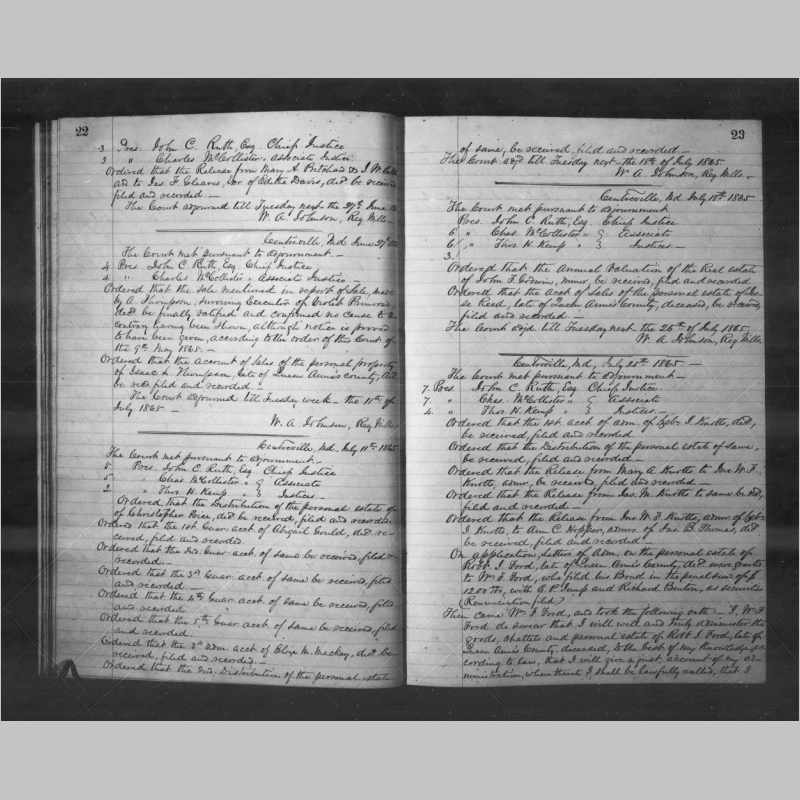 22
3 Pres. John C. Ruth, Esq. Chief Justice
3 " Charles McCollister, associate Justice
Ordered that the Release from Mary A. Pritchard & J. W.
and to Jas. F. Cleaves, Exr of Editha Davis, decd be received
filed and recorded. —
The Court adjourned till Tuesday next the 27th June
W. A. Johnson, Reg Wills.
Centreville, Md. June 27,
The Court met pursuant to adjournment. —
4 Pres. John C. Ruth, Esq. Chief Justice
4 " Charles McCollister " Associate Justice —
Ordered that the sale mentioned in report of Sale, made
by A. Thompson, surviving Executor of
decd be finally ratified and confirmed no cause to the
contrary having been shown, although notice is proved
to have been given, according to the order of this Court of
the 9th May 1865. —
Ordered that the Account of Sales of the personal property
of Isaac L. Thompson, late of Queen Anne's county,
be recd filed and recorded. —
The Court adjourned till Tuesday week — the 11th of
July 1865 —
W. A. Johnson, Reg Wills
Centreville, Md. July 11th, 1865
The Court met pursuant to adjournment. —
5 Pres. John C. Ruth, Esq Chief Justice
5 " Chas McCollister " } Associate
2 " Thos H. Kemp " } Justices —
Ordered that the Distribution of the personal estate
of Christopher Rice, decd be received, filed and recorded
Ordered that the 1st Guar. acct. of Abigail Gould, decd re-
ceived, filed and recorded.
Ordered that the 2nd. Guar. acct. of same be received, filed &
recorded. —
Ordered that the 3rd Guar. acct. of same be received, filed
and recorded. —
Ordered that the 4th Guar. acct. of same be received, filed
and recorded.
Ordered that the 5th Guar. acct. of same be received, filed
and recorded.
Ordered that the adm. acct of M. Mackey, decd be
received, filed and recorded. —
Ordered that the 2nd. Distribution of the personal estate
23
of same, be received filed and recorded —
The Court adjd till Tuesday next the 18th of July 1865
W. A. Johnson, Reg Wills.
Centreville, Md July 18th 1865
The Court met pursuant to adjournment.
Pres. John C. Ruth, Esq. Chief Justice
6 " Chas. McCollister " } Associate
6 " Thos. H. Kemp " } Justices —
3
Ordered that the Annual Valuation of the Real estate
of John F. Godwin, minor, be received, filed and recorded
Ordered that the acct of sales of the personal estate of
Reed, late of Queen Anne's County, deceased, be received,
filed and recorded. —
The Court adjd till Tuesday next the 25th of July 1865,
W. A. Johnson, Reg Wills
Centreville, Md., July 25th 1865 —
The Court met pursuant to adjournment —
7. Pres. John C. Ruth, Esq Chief Justice
7. " Chas. McCollister " } Associate
4. " Thos. H. Kemp " } Justices. —
Ordered that the 1st. acct of adm. of Geo. I Knotts, decd,
be received, filed and recorded
Ordered that the Distribution of the personal estate of same,
be received, filed and recorded. —
Ordered that the Release from Mary A. Knotts to Jno W. F.
Knotts, admr, be received, filed and recorded —
Ordered that the Release from Jas. M. Knotts to same be recd,
filed and recorded —
Ordered that the Release from Jno W. F. Knotts, admr. of Geo.
I Knotts, to Ann C. Hopper, admx. of Jas B. Thomas, decd
be received filed and recorded
On application, letters of Adm. on the personal estate of
Robt I. Ford, late of Queen Anne's County, decd were granted
to Wm F. Ford, who filed his Bond in the penal sum of $
1200 70/00, with A. P. Sharp and Richard Benton, as securities
(Renunciation filed)
Then came W. F. Ford, and took the following oath — I, W. F.
Ford do swear that I will well and truly administer the
goods, chattels and personal estate of Robt I. Ford, late of
Queen Anne's County, deceased, to the best of my knowledge, ac-
cording to law, that I will give a just account of my ad-
ministration, when thereto I shall be lawfully called, that I